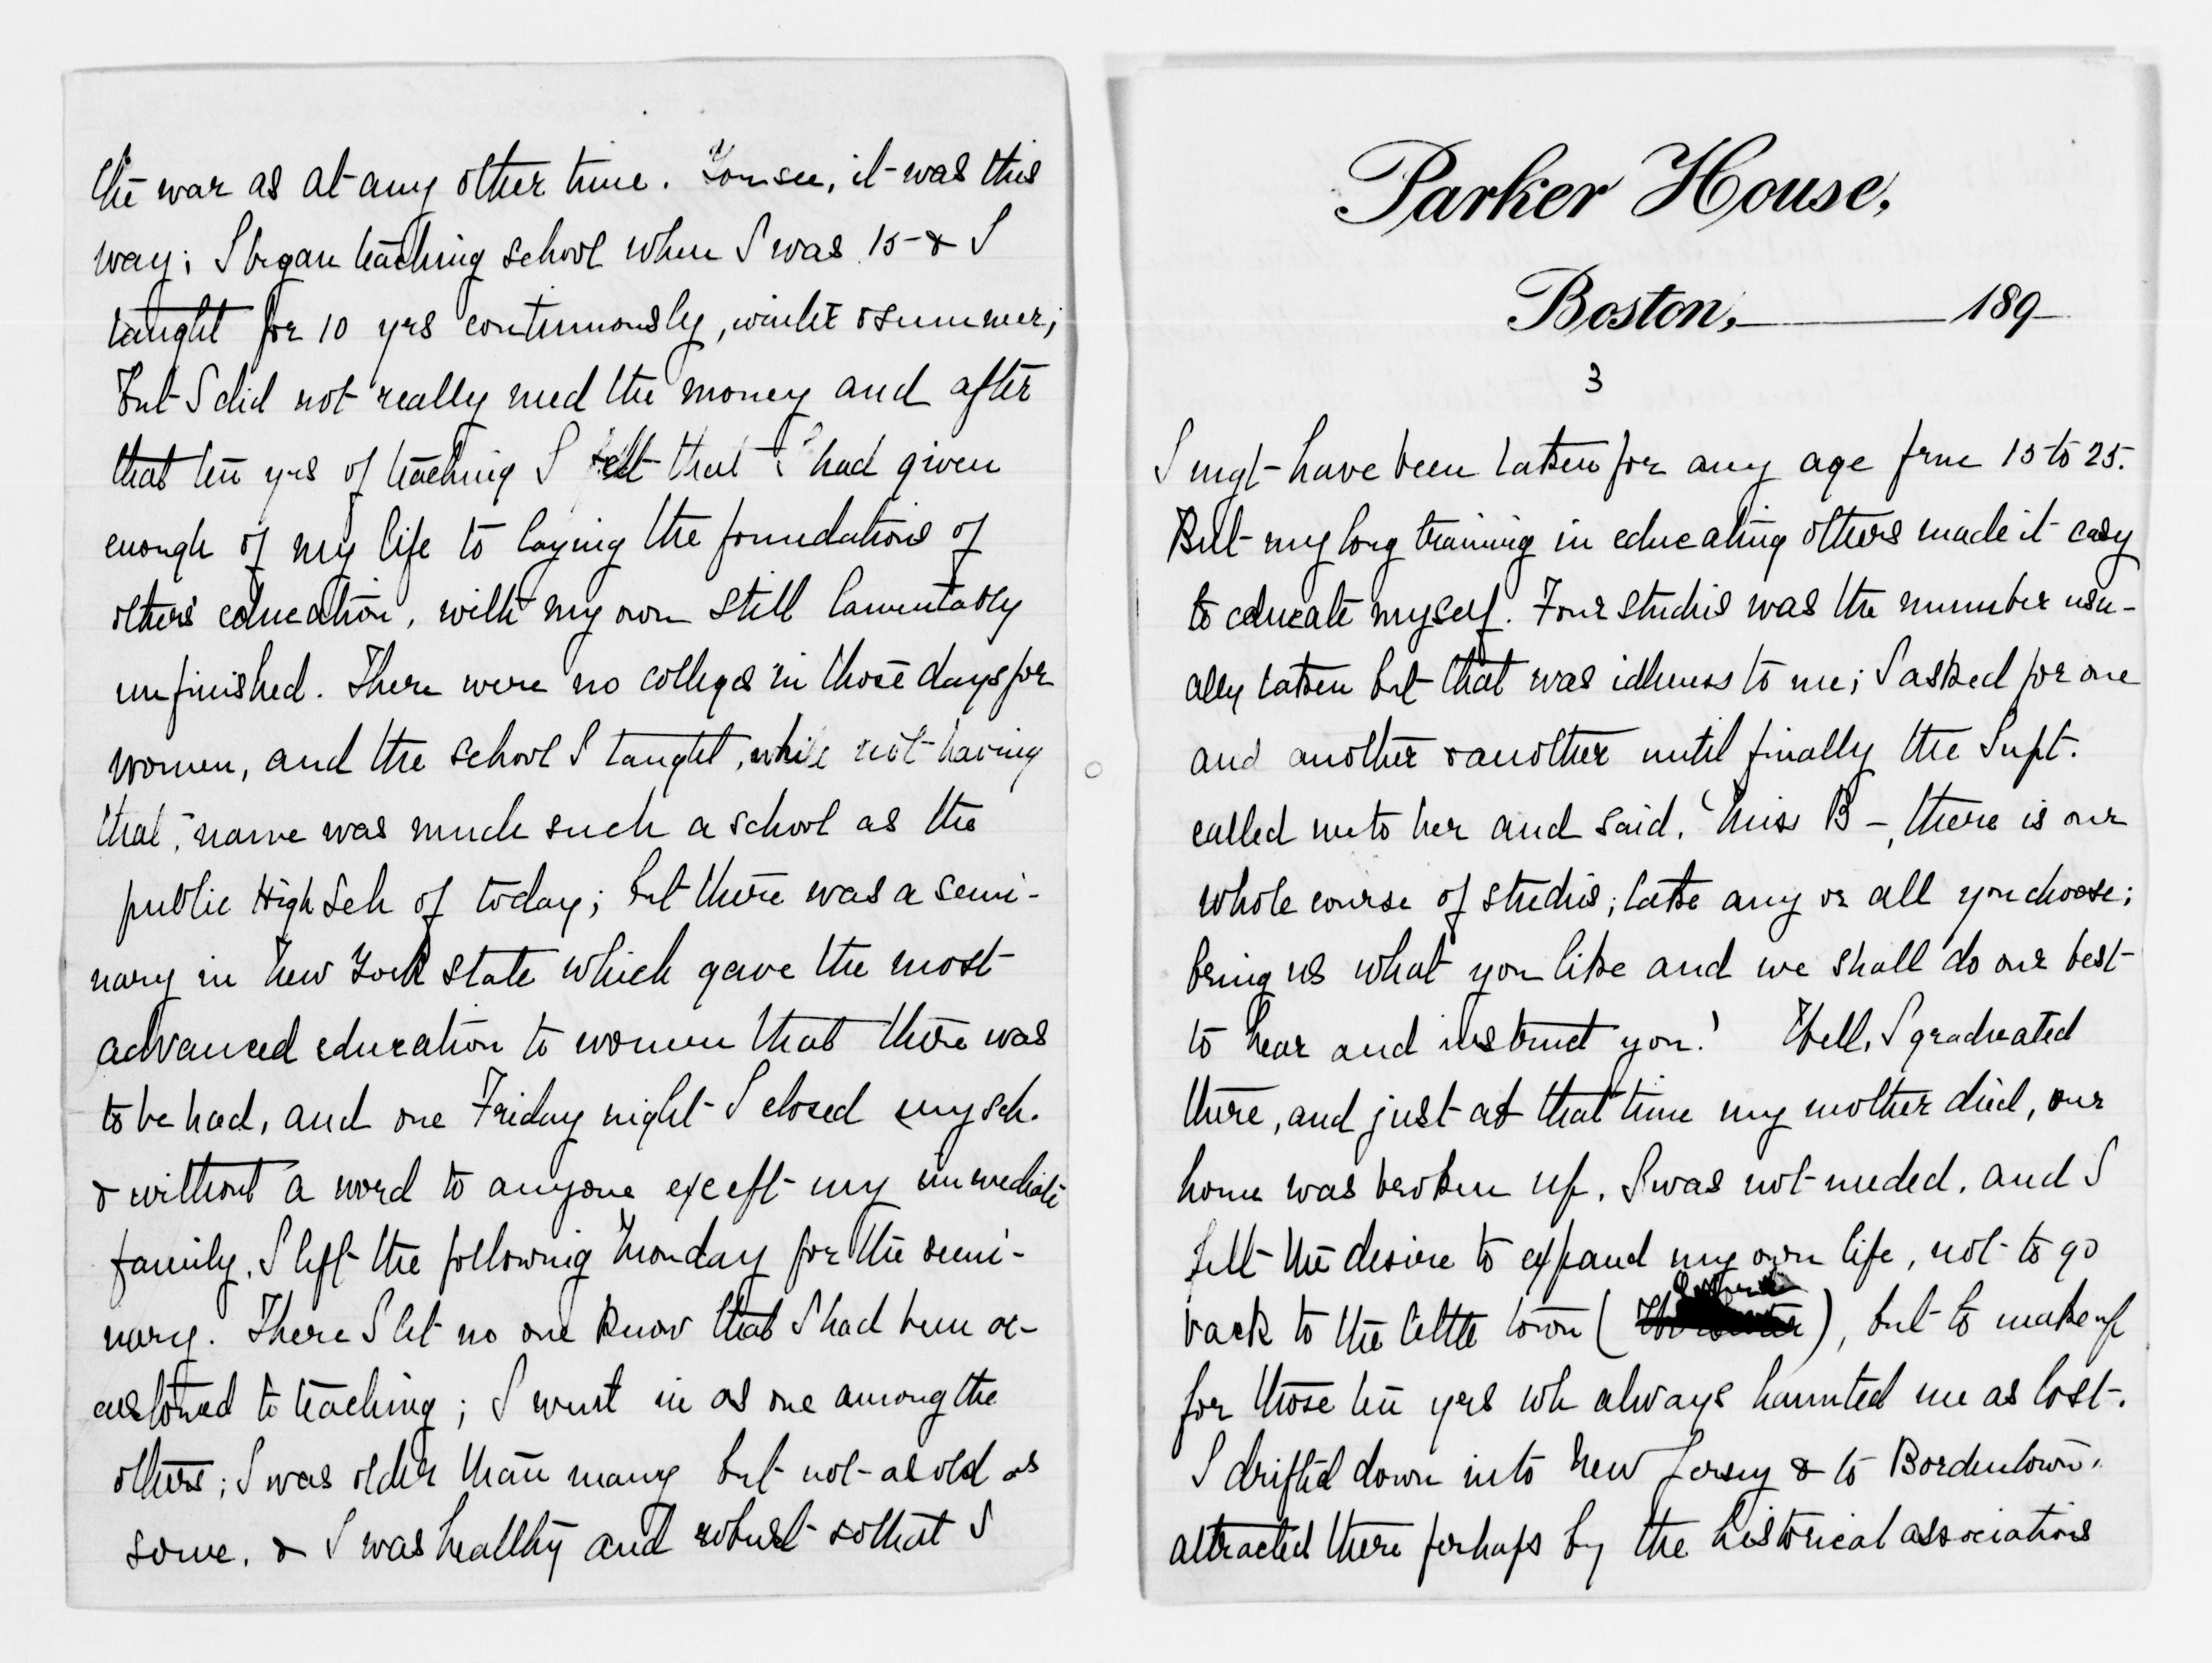 the war as at any other time. You see, it was this
way; I began teaching school when I was 15 & I
taught for 10 yrs continuously, winter & summer;
but I did not really need the money and after
that ten yrs of teaching I felt that I had given
enough of my life to laying the foundations of
others' education, with my own still lamentably
unfinished. There were no colleges in those days for
women, and the school I taught, while not having
that name was much such a school as the
public High Sch of today; but there was a semi-
nary in New York state which gave the most
advanced education to women that there was
to be had, and one Friday night I closed my sch.
& without a word to anyone except my immediate
family, I left the following Monday for the semi-
nary. There I let no one know that I had been ac-
customed to teaching; I went in as one among the
others; I was older than many but not as old as
some, & I was healthy and robust so that I
Parker House,
Boston, 189
3
I mgt have been taken for any age from 15 to 25.
But my long training in educating others made it easy
to educate myself. Four studies was the number usu-
ally taken but that was idleness to me; I asked for one
and another & another until finally the Supt.
called me to her and said, 'Miss B—, there is our
whole course of studies; take any or all you choose;
bring us what you like and we shall do our best
to hear and instruct you.' Well, I graduated
there, and just at that time my mother died, our
home was broken up, I was not needed, and I
felt the desire to expand my own life, not to go
back to the little town ( ), but to make up
for those ten yrs wh always haunted me as lost.
I drifted down into New Jersey & to Bordentown,
attracted there perhaps by the historical associations